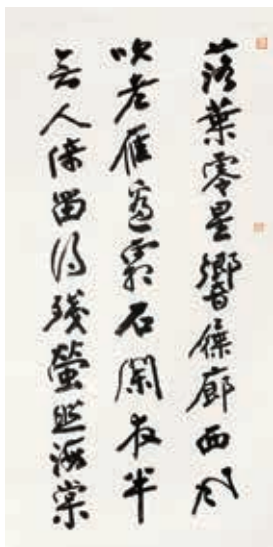 落葉零星響屧廊西風
吹老雁邊霜石闌夜半
無人倚留得殘螢照海棠